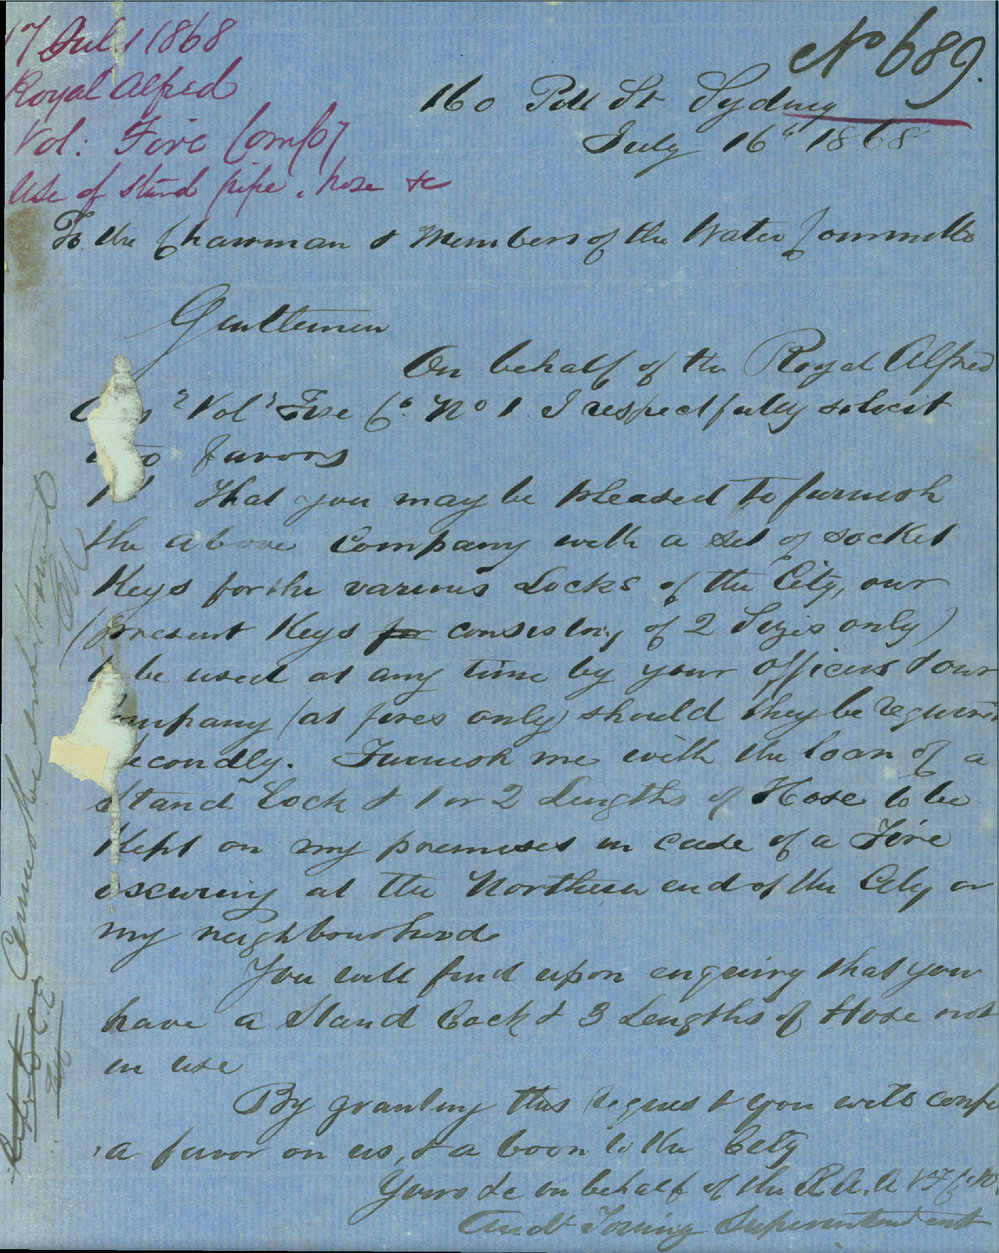 17 July 1868
Royal Alfred
Vol: Fire Comp'y
Use of stand pipe, hose &c
No 689.
160 Pitt St Sydney
July 16th 1868
To the Chairman & Members of the Water Committee
Gentlemen
On behalf of the Royal Alfred
"Vol" Fire Co. No 1. I respectfully solicit
two favors
1st That you may be pleased to furnish
the above Company with a set of socket
Keys for the various Locks of the City, our
(present Keys for consisting of 2 Sizes only)
to be used at any time by your officers & our
Company (at fires only) should they be required
Secondly. Furnish me with the loan of a
Stand Cock & 1 or 2 Lengths of Hose to be
Kept on my premises in case of a Fire
occuring at the Northern end of the City or
my neighbourhood
You will find upon enquiry that you
have a Stand Cock & 3 Lengths of Hose not
in use
By granting this request you will confer
a favor on us, & a boon to the City
Yours &c on behalf of the R.A.A V F Co. No
Andw Torning Superintendent
Cannot be entertained